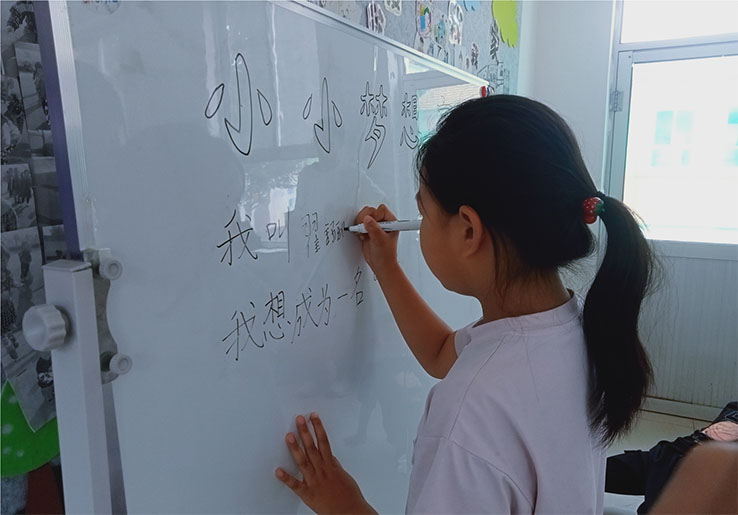 小小梦想
我叫
我想成为一名